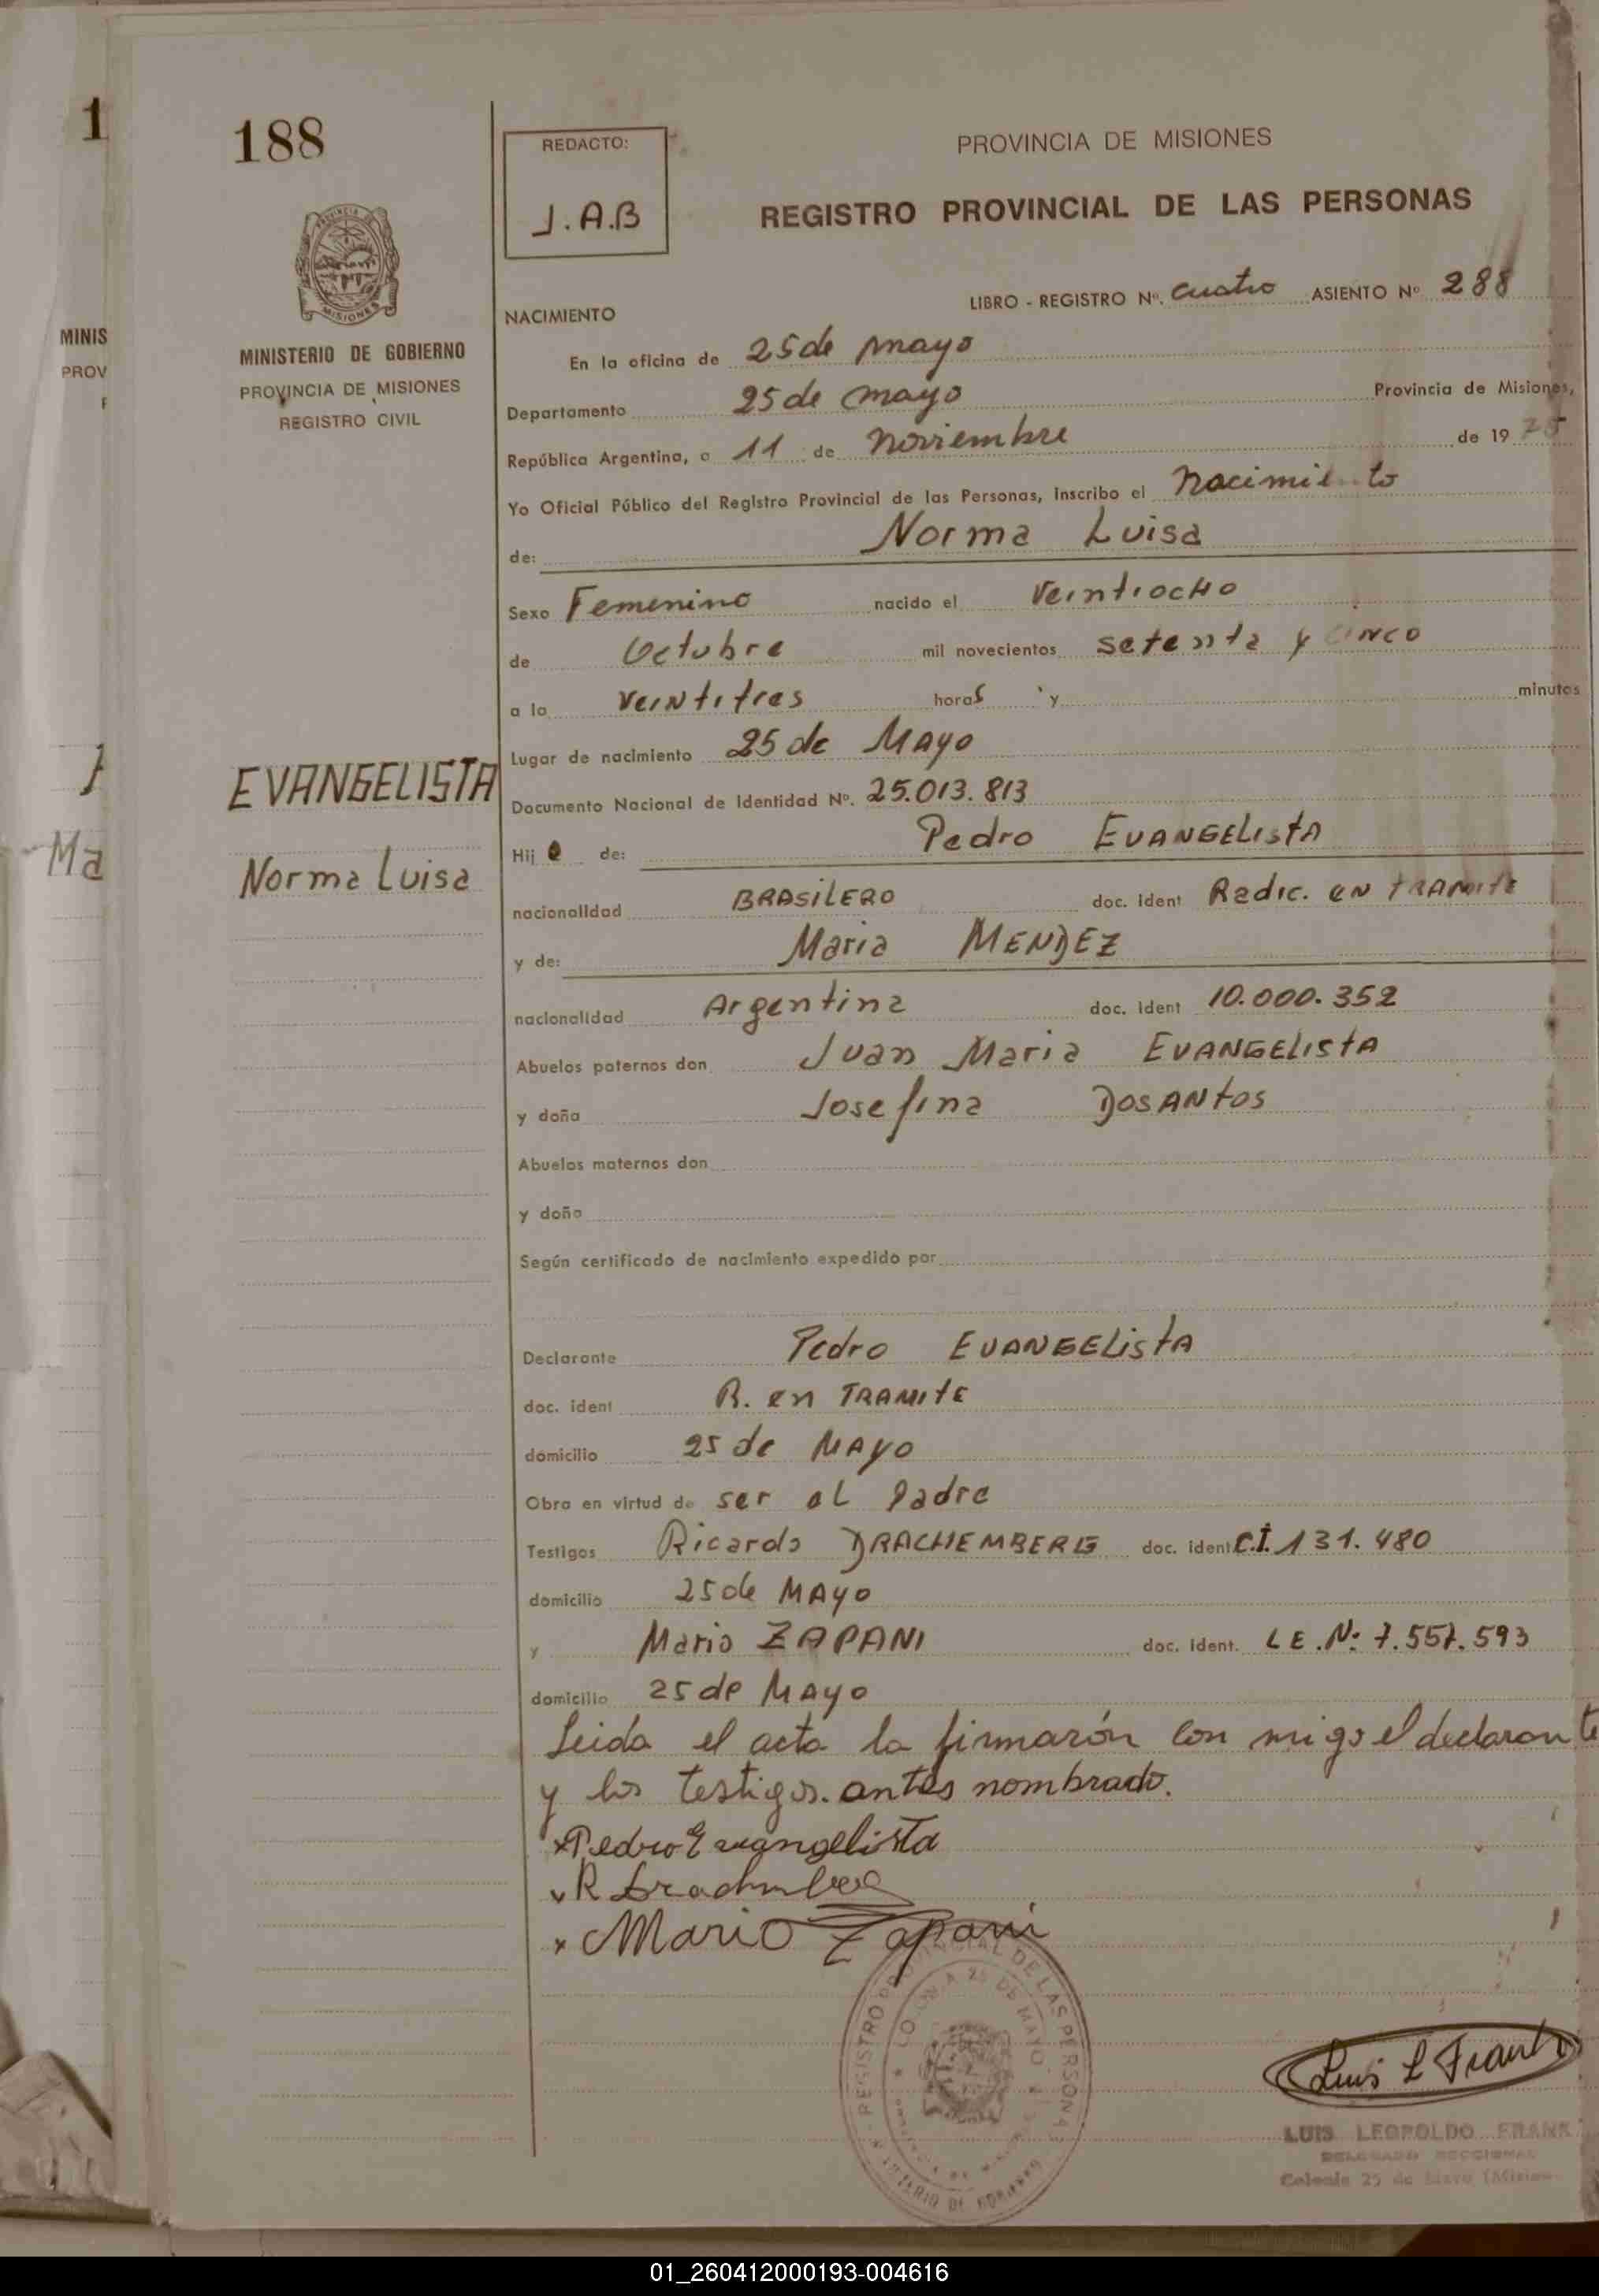 1
188
REDACTO:
J.A.B
PROVINCIA DE MISIONES
REGISTRO PROVINCIAL DE LAS PERSONAS
MISIONES
MINIS
PROV
MINISTERIO DE GOBIERNO
PROVINCIA DE MISIONES
REGISTRO CIVIL
LIBRO - REGISTRO Nº. cuatro ASIENTO Nº 288
NACIMIENTO
En la oficina de 25 de mayo
Departamento 25 de mayo Provincia de Misiones,
República Argentina, a 11 de Noviembre de 1975
Yo Oficial Público del Registro Provincial de las Personas, inscribo el Nacimiento
de: Norma Luisa
Sexo Femenino nacido el Veintiocho
de Octubre mil novecientos setenta y cinco
a la veintitres horas y minutos
Lugar de nacimiento 25 de Mayo
EVANGELISTA
Documento Nacional de Identidad Nº. 25.013.813
Ma
Norma Luisa
Hij de: Pedro EVANGELISTA
nacionalidad BRASILERO doc. ident Radic. en TRAMITE
y de: Maria MENDEZ
nacionalidad Argentina doc. ident 10.000.352
Abuelos paternos don Juan Maria EVANGELISTA
y doña Josefina DOSANTOS
Abuelos maternos don
y doña
Según certificado de nacimiento expedido por
Declarante Pedro EVANGELISTA
doc. ident R. en TRAMITE
domicilio 25 de MAYO
Obra en virtud de ser el Padre
Testigos Ricardo DRACHEMBERG doc. ident C.I. 131.480
domicilio 25 de MAYO
y Mario ZAPANI doc. ident. L E. Nº 7.557.593
domicilio 25 de MAYO
Leida el acta la firmarón con migo el declarante
y los testigos antes nombrado.
x Pedro Evangelista
x Mario Zapani
REGISTRO PROVINCIAL DE LAS PERSONAS
COLONIA 25 DE MAYO
Luis L Frank
LUIS LEOPOLDO FRANK
DELEGADO SECCIONAL
Colonia 25 de Mayo
01_260412000193-004616